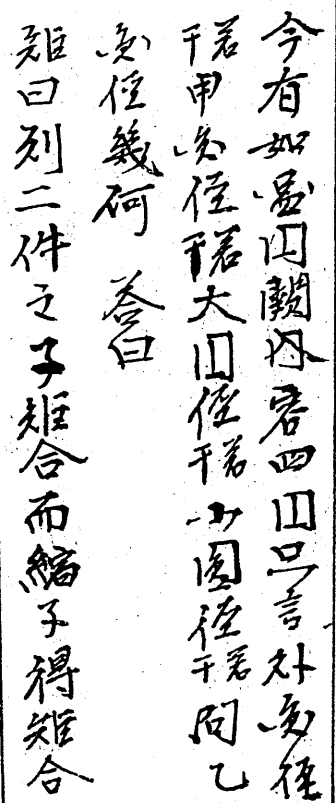 今有如図円闕内容四円只言外円径
若干甲円径若干大円径若干小圓径若干問乙
円径幾何　答曰
矩曰列二件之子矩合而縮子得矩合